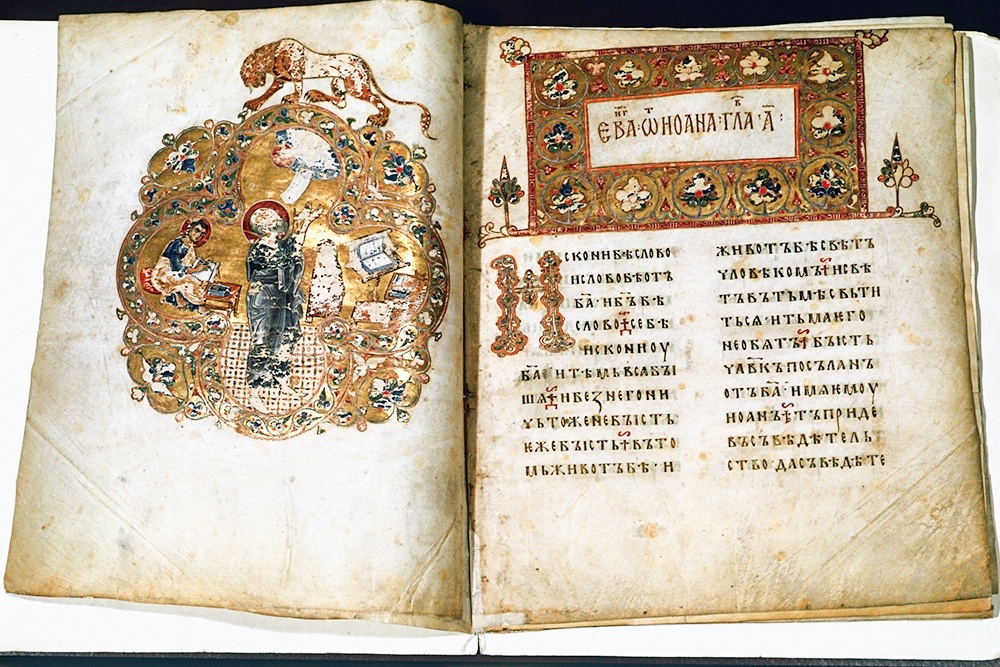 ЕВА҃НГ · Ѿ ИОАНА · ГЛА В҃ · А҃ :
ИСКОНИ БѢ СЛОВО
И СЛОВО БѢ ОТЪ
БА҃ · И БЪ҃ БѢ
СЛОВО · СЕ БѢ
ИСКОНИ ОУ
БА҃ · И ТѢМЬ ВСЯ БЫ
ШѦ · И БЕЗ НЕГО НИ
ЧЬТОЖЕ НЕ БЫСТЬ
ЕЖЕ БЫСТЬ · ВЪ ТО
МЬ ЖИВОТЪ БѢ · И
ЖИВОТЪ БѢ СВѢТЪ
ЧЛОВѢКОМЪ · И СВѢ
ТЪ ВЪ ТЬМѢ СВЬТИ
ТЬСЯ · И ТЬМА ѤГО
НЕ ОБЯТЪ · БЫСТЬ
ЧЛ҃ВКЪ ПОСЪЛАНЪ
ОТЪ БА҃ · ИМЯ ѤМОУ
ИОАНЪ · ТЪ ПРИДЕ
ВЪ СЪВѢДѢТЕЛЬ
СТВО · ДА СЪВѢДѢТЕ